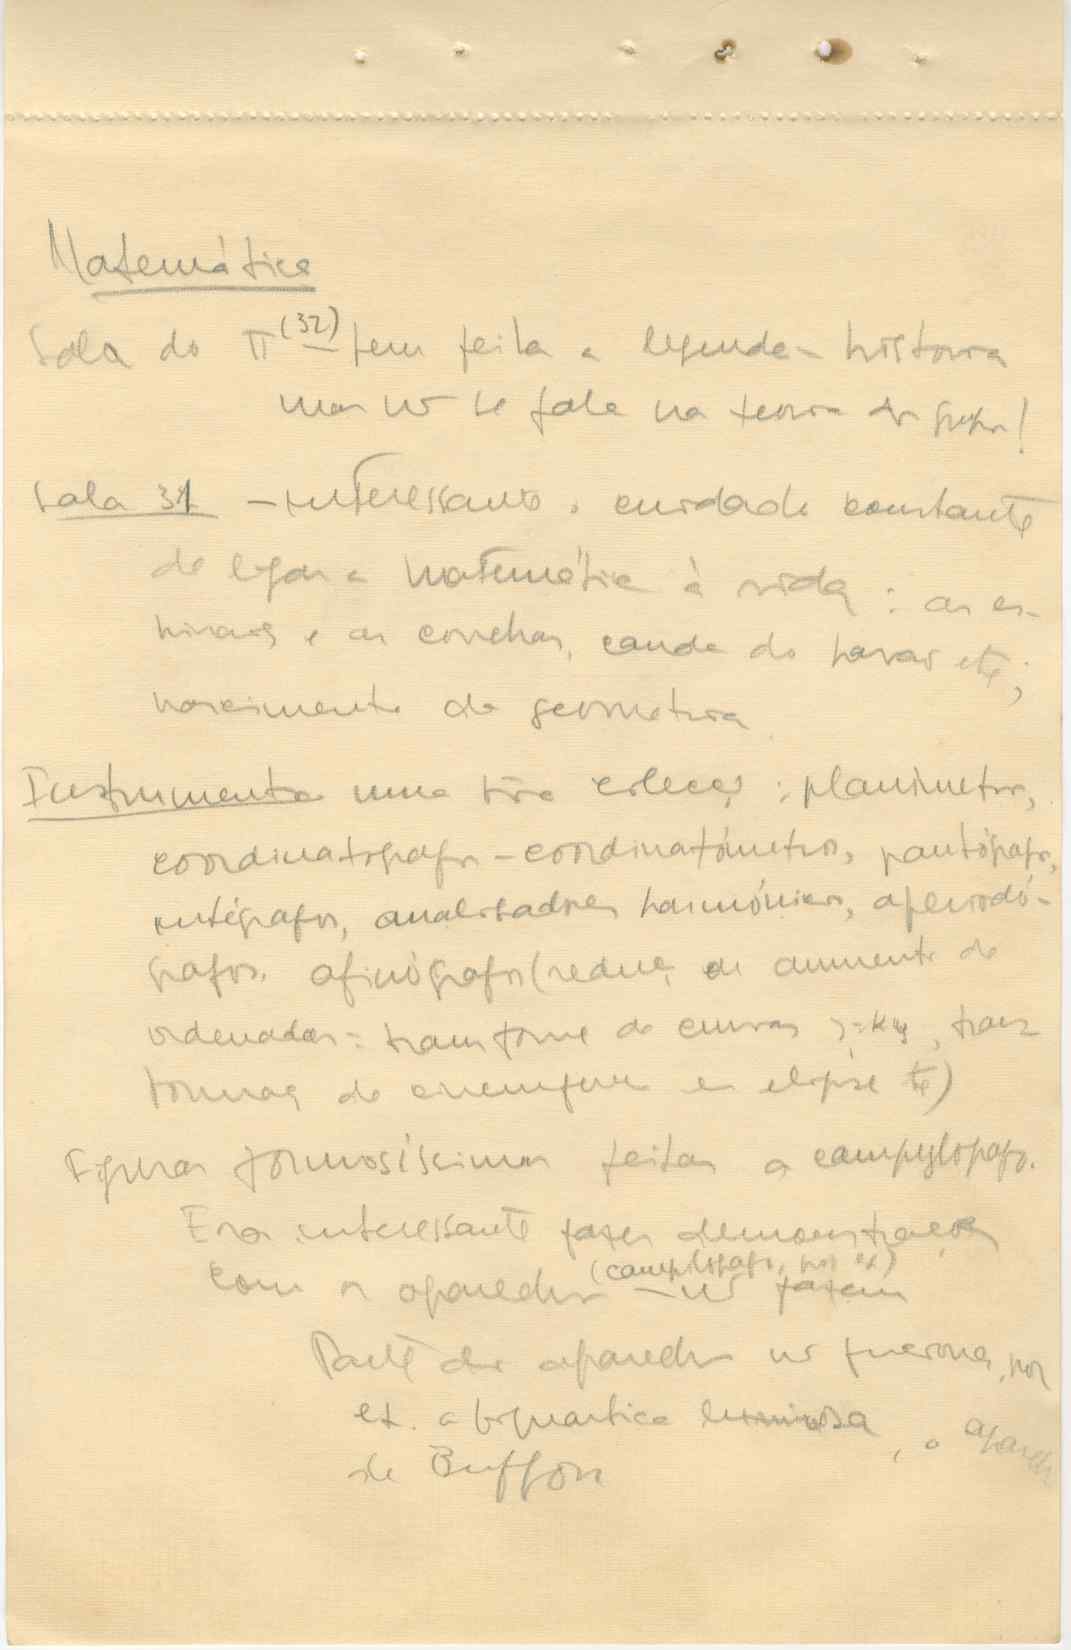 Matemática
Sala do π (32) – tem feita a legenda – história
mas não se fala na teoria dos grupos!
Sala 31 – interessante o cuidado constante
de ligar a matemática à vida: as es-
pirais e as conchas, cauda do pavão etc;
nascimento da geometria
Instrumentos uma boa colecç: planímetros,
coordinatógrafos – coordinatómetros, pantógrafos,
intégrafos, analisadores harmónicos,
grafos. afinógrafos (reduç ou aumento de
ordenadas = transforme de curvas y=ky, trans
formaç de circunfer em elipse etc)
Figuras formosíssimas feitas a campylógrafo.
Era interessante fazer demonstrações
com os aparelhos (campilógrafo, por ex) – não fazem
Parte dos aparelhos não funciona, por
ex. a biquártica luminosa, o aparelho
de Buffon